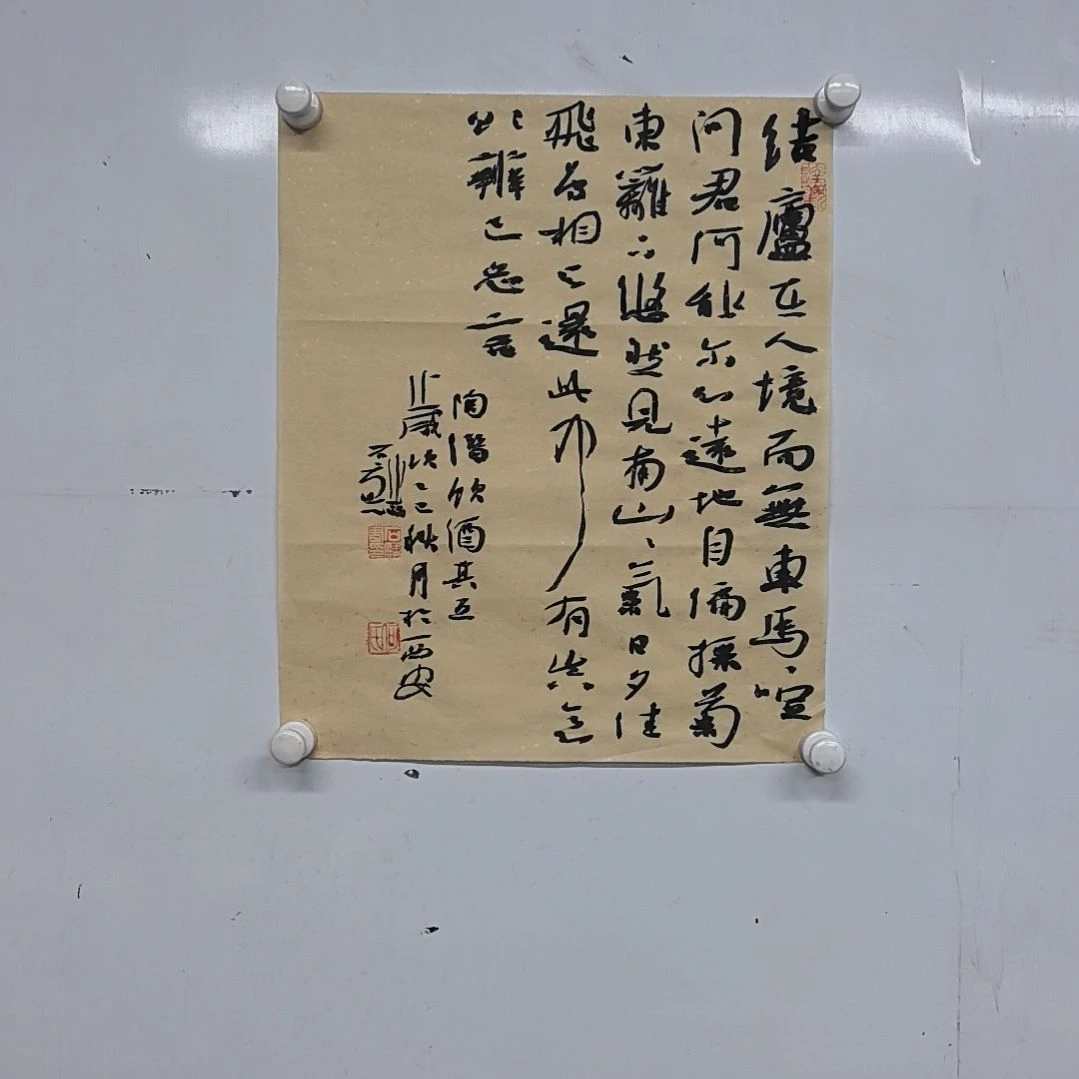 結廬在人境而無車馬喧
问君何能尔心遠地自偏採菊
東籬下悠然見南山、氣日夕佳
飛鳥相与還此中有真意
欲辯已忘言
陶潛飲酒其五
歲次乙巳秋月於西安